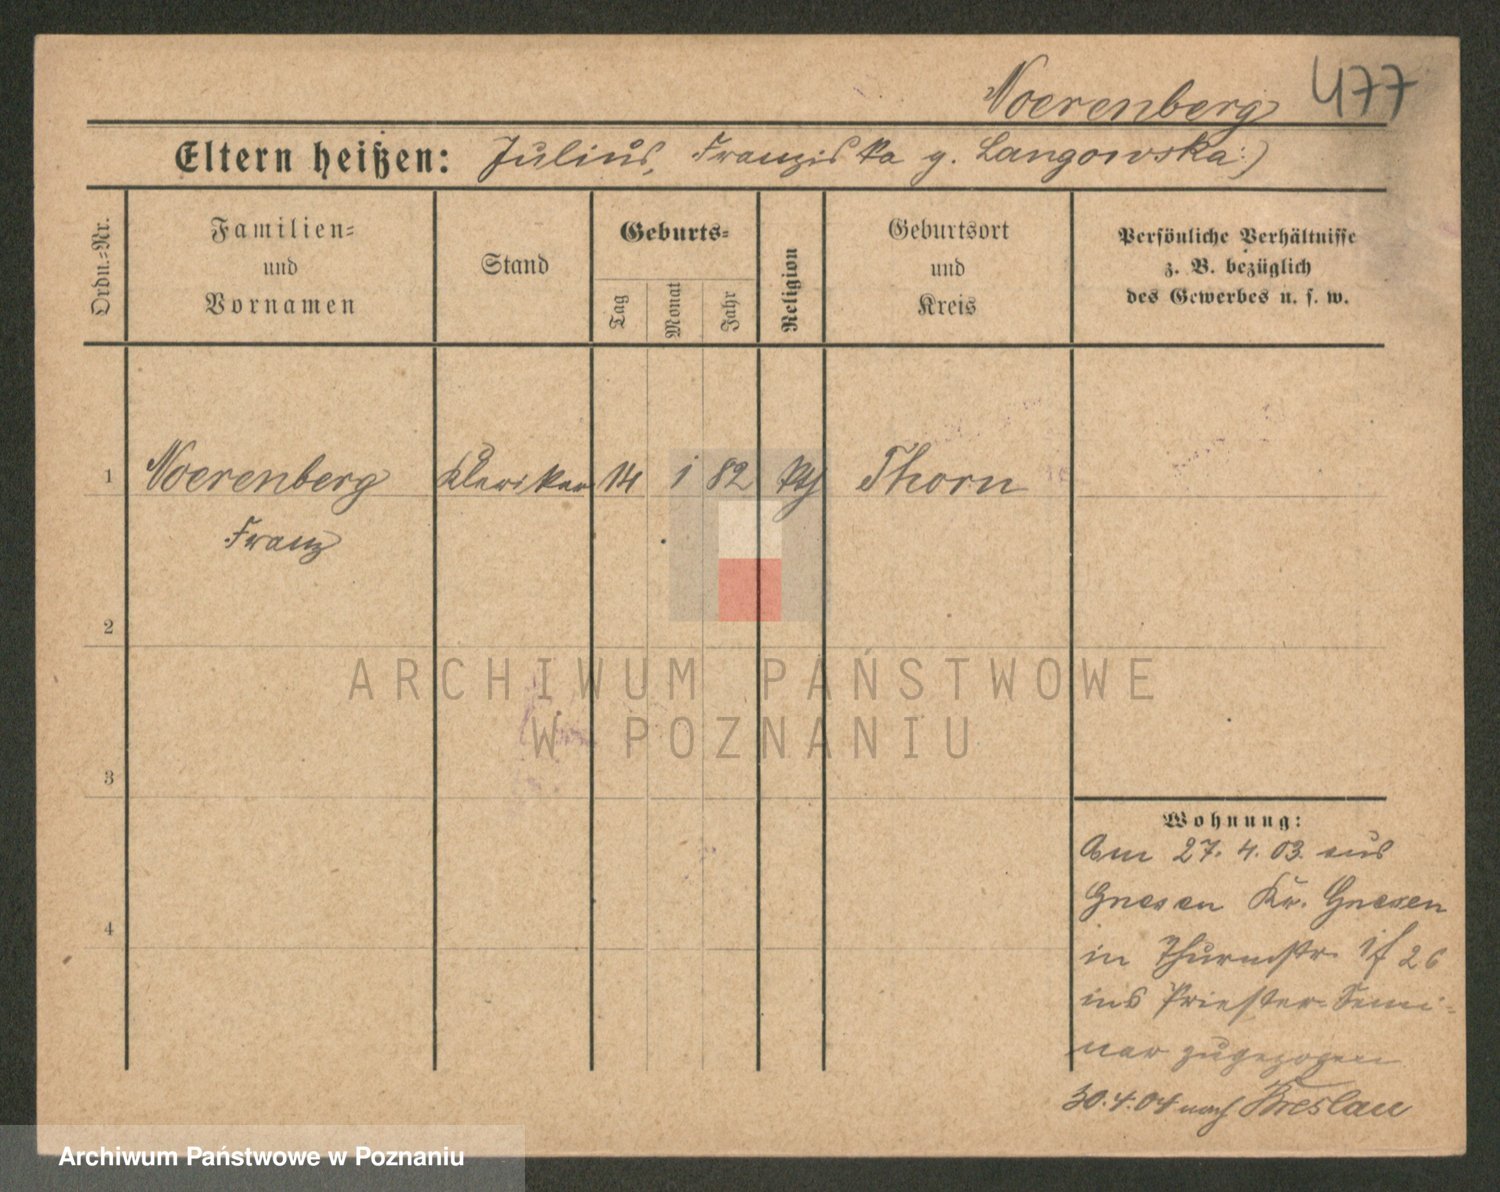 Noerenberg 477
Eltern heißen: Julius, Franziska g. Langowska :)
Ordn.-Nr.
Familien-
und
Vornamen
Stand
Geburts-
Tag
Monat
Jahr
Religion
Geburtsort
und
Kreis
Persönliche Verhältnisse
z. B. bezüglich
des Gewerbes u. s. w.
1 Noerenberg Kleriker 14 1 82 kth Thorn
Franz
2
ARCHIWUM PAŃSTWOWE
W POZNANIU
3
Wohnung:
Am 27. 4. 03. aus
Gnesen Kr. Gnesen
in Thurmstr. 26
ins Priester-Semi-
nar zugezogen
30.4.04 nach Breslau
4
Archiwum Państwowe w Poznaniu